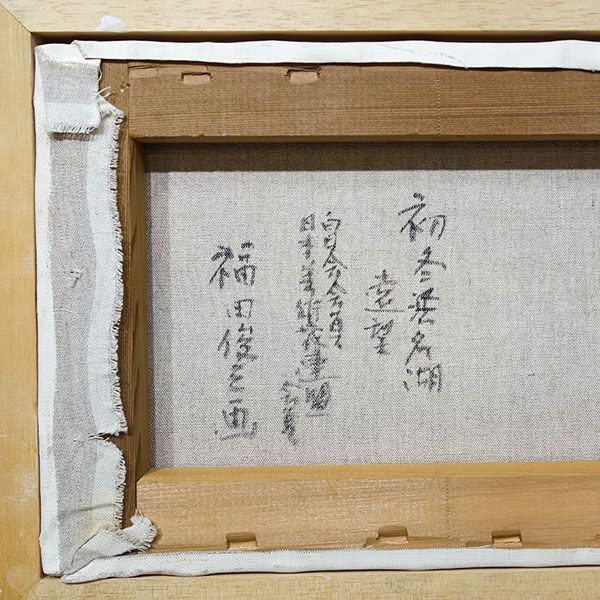 初冬浜名湖
遠望
白日会会員
日本美術家連盟
会員
福田俊三画